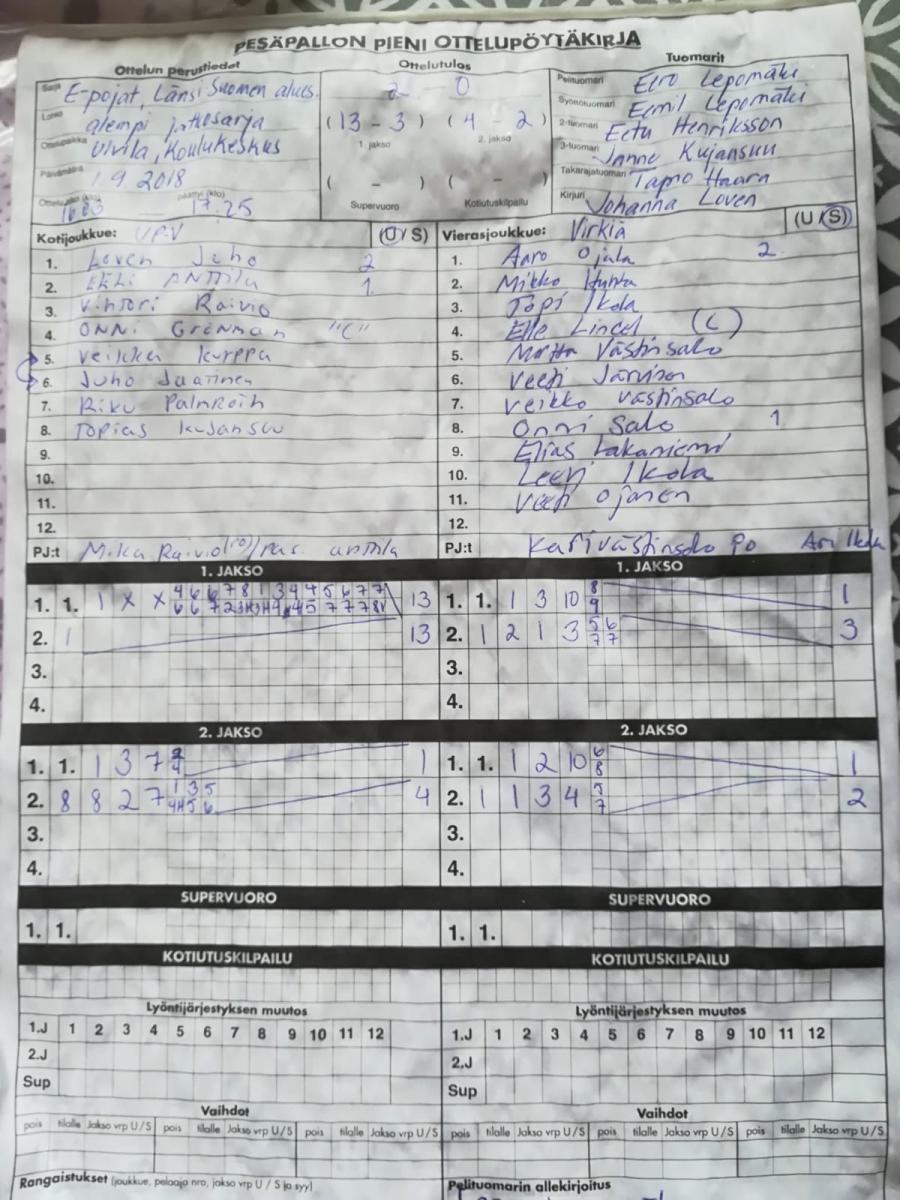 PESÄPALLON PIENI OTTELUPÖYTÄKIRJA
Ottelun perustiedot
Sarja E-pojat, Länsi Suomen alues.
Lohko alempi jatkosarja
Ottelupaikka Ulvila, Koulukeskus
Päivämäärä 1.9 2018
päättyi (klo) 17.25
Ottelutulos
2 0
(13 - 3) (4 - 2)
1. jakso 2. jakso
( - ) ( - )
Supervuoro Kotiutuskilpailu
Tuomarit
Pelituomari Eero Lepomäki
Syöttötuomari Eemil Lepomäki
2-tuomari Eetu Henriksson
3-tuomari Janne Kujansuu
Takarajatuomari Tapio Haara
Kirjuri Johanna Loven
Kotijoukkue: UP-V (U/S)
1. Loven Juho 2
2. Anttila 1
3. Vihtori Raivio
4. Onni Grönman "C"
5. Veikka Kurppa
6. Juho Jaatinen
7. Riku Palmroth
8. Topias Kujansuu
9.
10.
11.
12.
PJ:t Mika Raivio Anttila
Vierasjoukkue: Virkiä (U/S)
1. Aaro Ojala 2
2. Mikko Huhta
3. Topi Ikola
4. (C)
5. Västinsalo
6. Veeti Järvinen
7. Veikko Västinsalo
8. Onni Salo 1
9. Elias Lakaniemi
10. Leevi Ikola
11. Veeti Ojanen
12.
PJ:t Kari Västinsalo PJ Ari Ikola
1. JAKSO
1. 1. 1 X X 13
2. 1 13
3.
4.
1. JAKSO
1. 1. 1 3 10 8 9 1
2. 1 2 1 3 5 6 7 7 3
3.
4.
2. JAKSO
1. 1. 1 3 7 1
2. 8 8 2 7 4
3.
4.
2. JAKSO
1. 1. 1 2 10 6 8 1
2. 1 1 3 4 2
3.
4.
SUPERVUORO
1. 1.
SUPERVUORO
1. 1.
KOTIUTUSKILPAILU
KOTIUTUSKILPAILU
Lyöntijärjestyksen muutos
1.J 1 2 3 4 5 6 7 8 9 10 11 12
2.J
Sup
Lyöntijärjestyksen muutos
1.J 1 2 3 4 5 6 7 8 9 10 11 12
2.J
Sup
Vaihdot
pois tilalle Jakso vrp U/S pois tilalle Jakso vrp U/S pois tilalle Jakso vrp U/S
Vaihdot
pois tilalle Jakso vrp U/S pois tilalle Jakso vrp U/S pois tilalle Jakso vrp U/S
Rangaistukset (joukkue, pelaaja nro, jakso vrp U / S ja syy)
Pelituomarin allekirjoitus